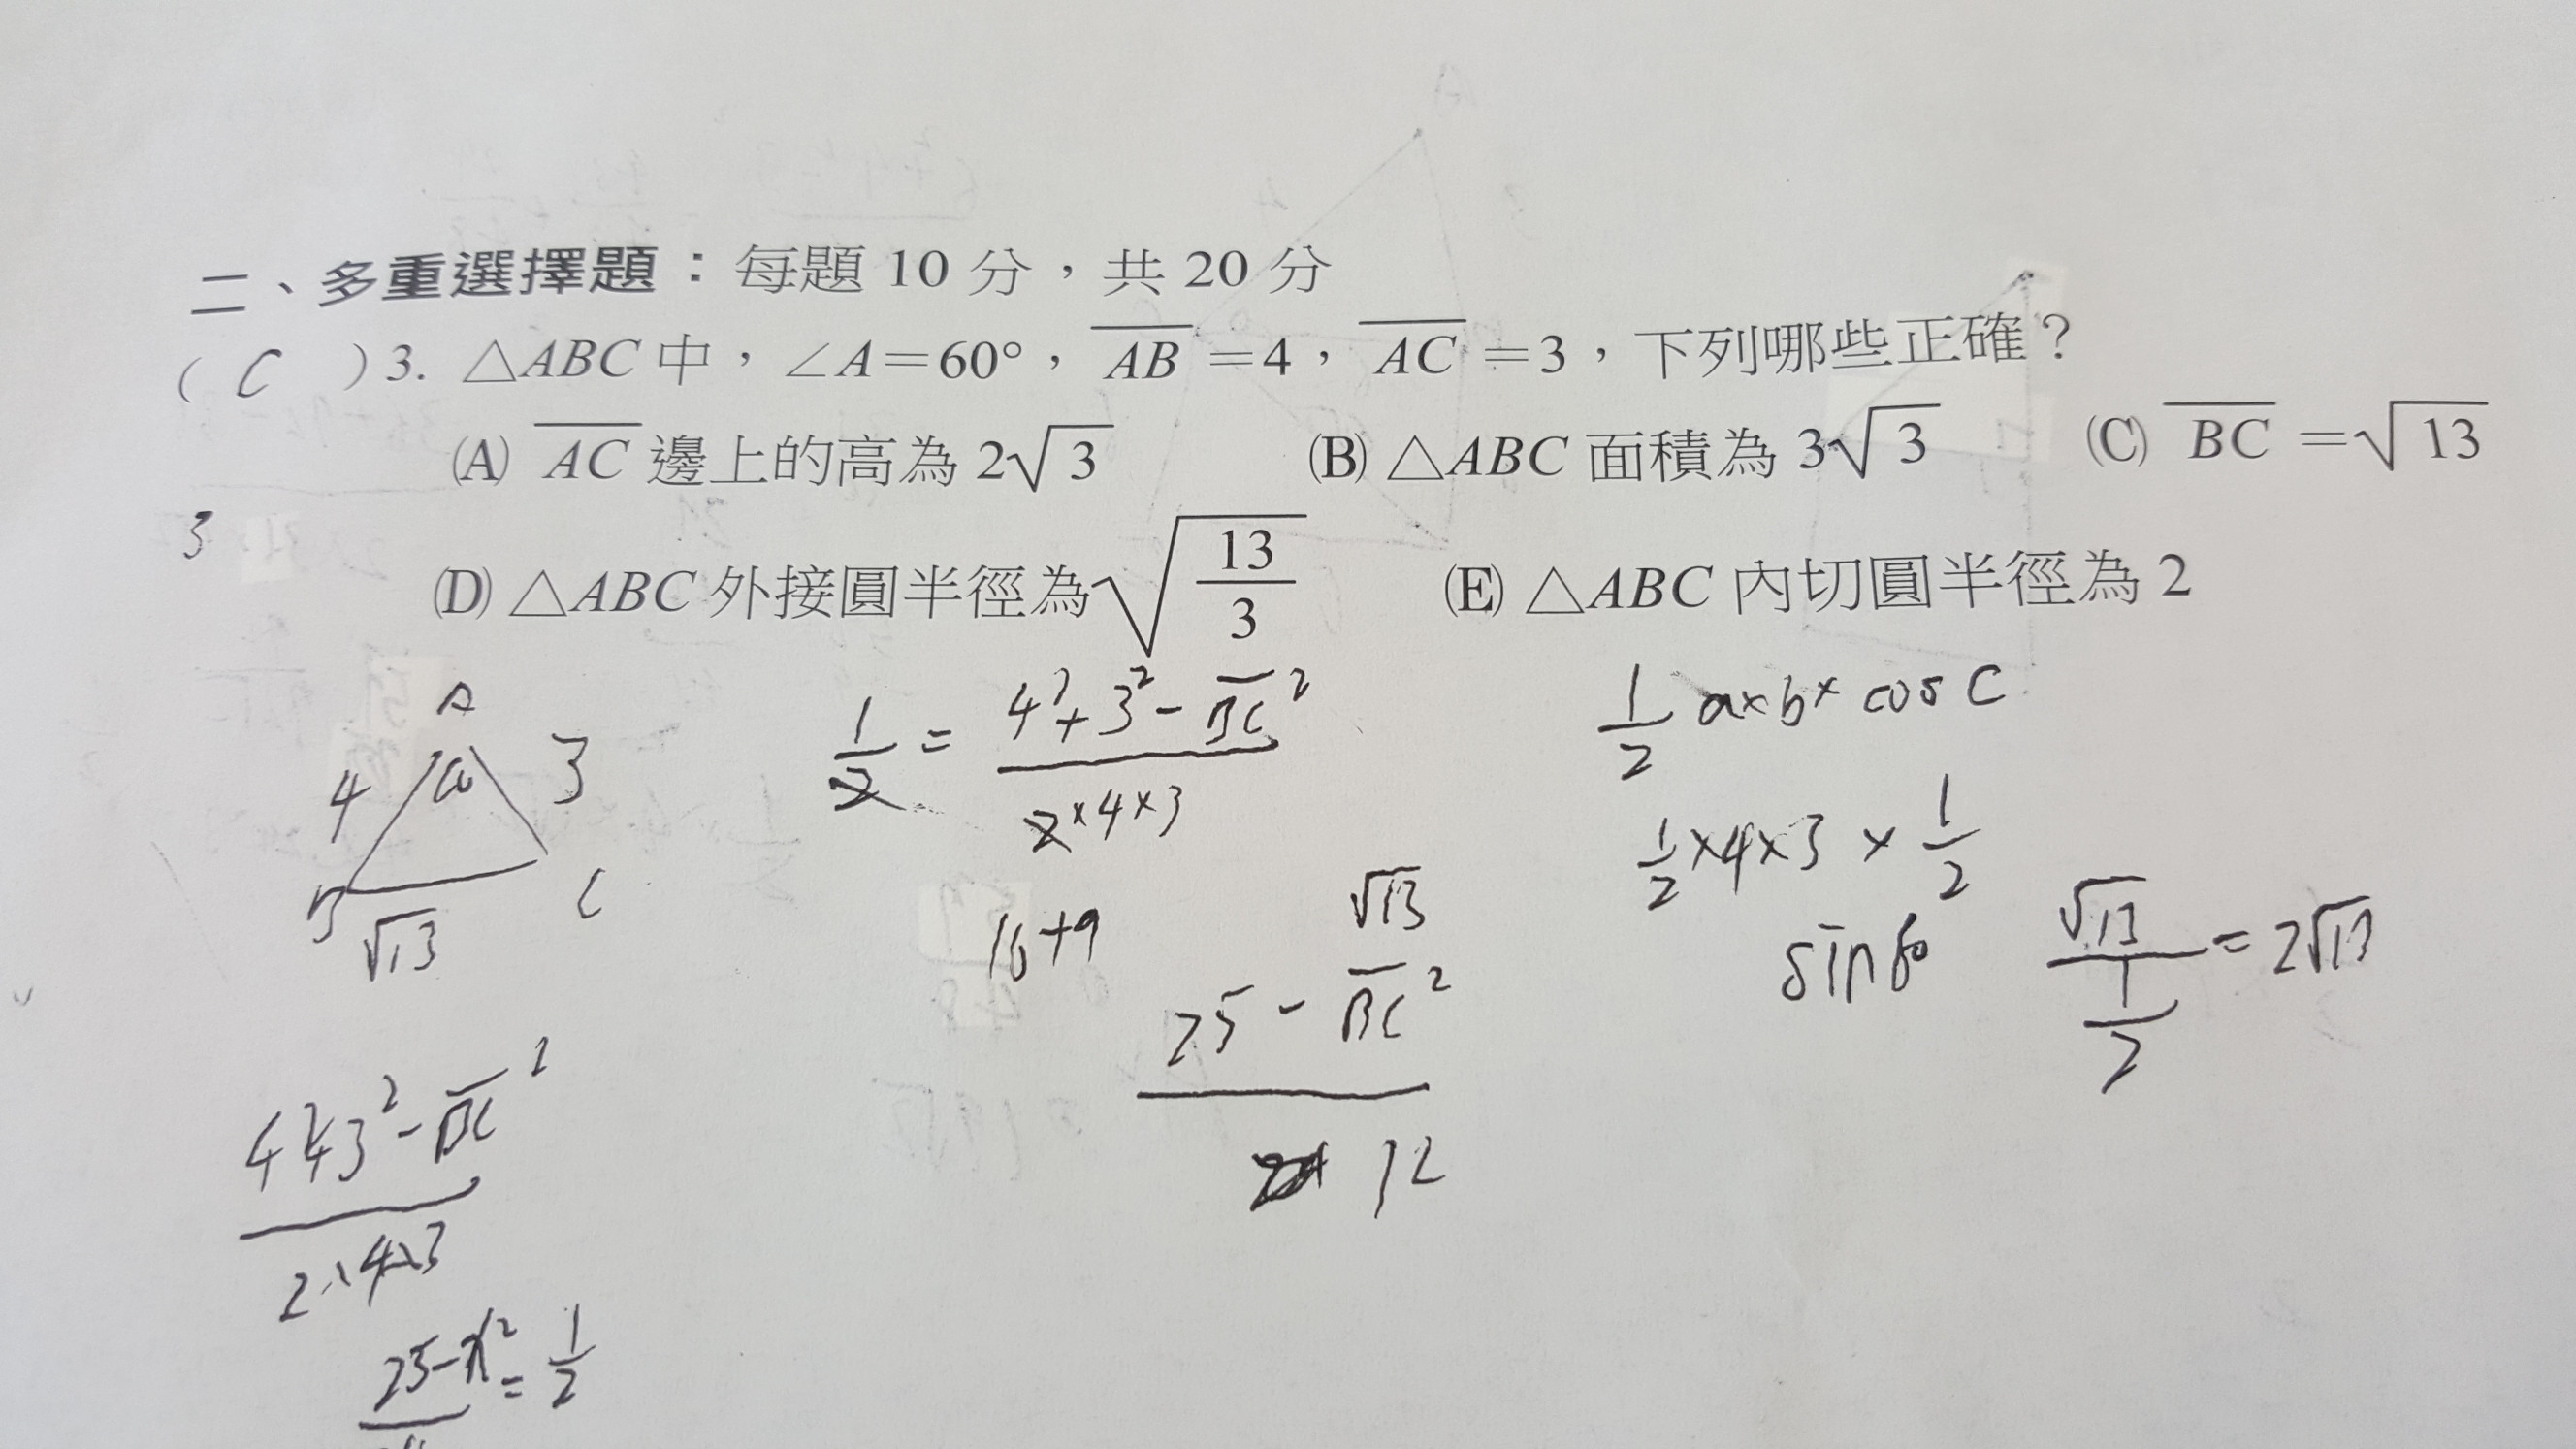 二、多重選擇題：每題 10 分，共 20 分
( C ) 3. △ABC 中，∠A＝60°，AB＝4，AC＝3，下列哪些正確？
(A) AC 邊上的高為 2√3 (B) △ABC 面積為 3√3 (C) BC＝√13
3
(D) △ABC 外接圓半徑為 √(13/3) (E) △ABC 內切圓半徑為 2
A
4 60 3
B C
√13
1/2 = (4²+3²-BC²)/(2×4×3)
1/2 a×b× cos C
1/2 ×4×3 × 1/2
16+9
√13
(25-BC²)/12
sin60
√13/(1/2) = 2√13
(4²+3²-BC²)/(2×4×3)
25-x² = 1/2